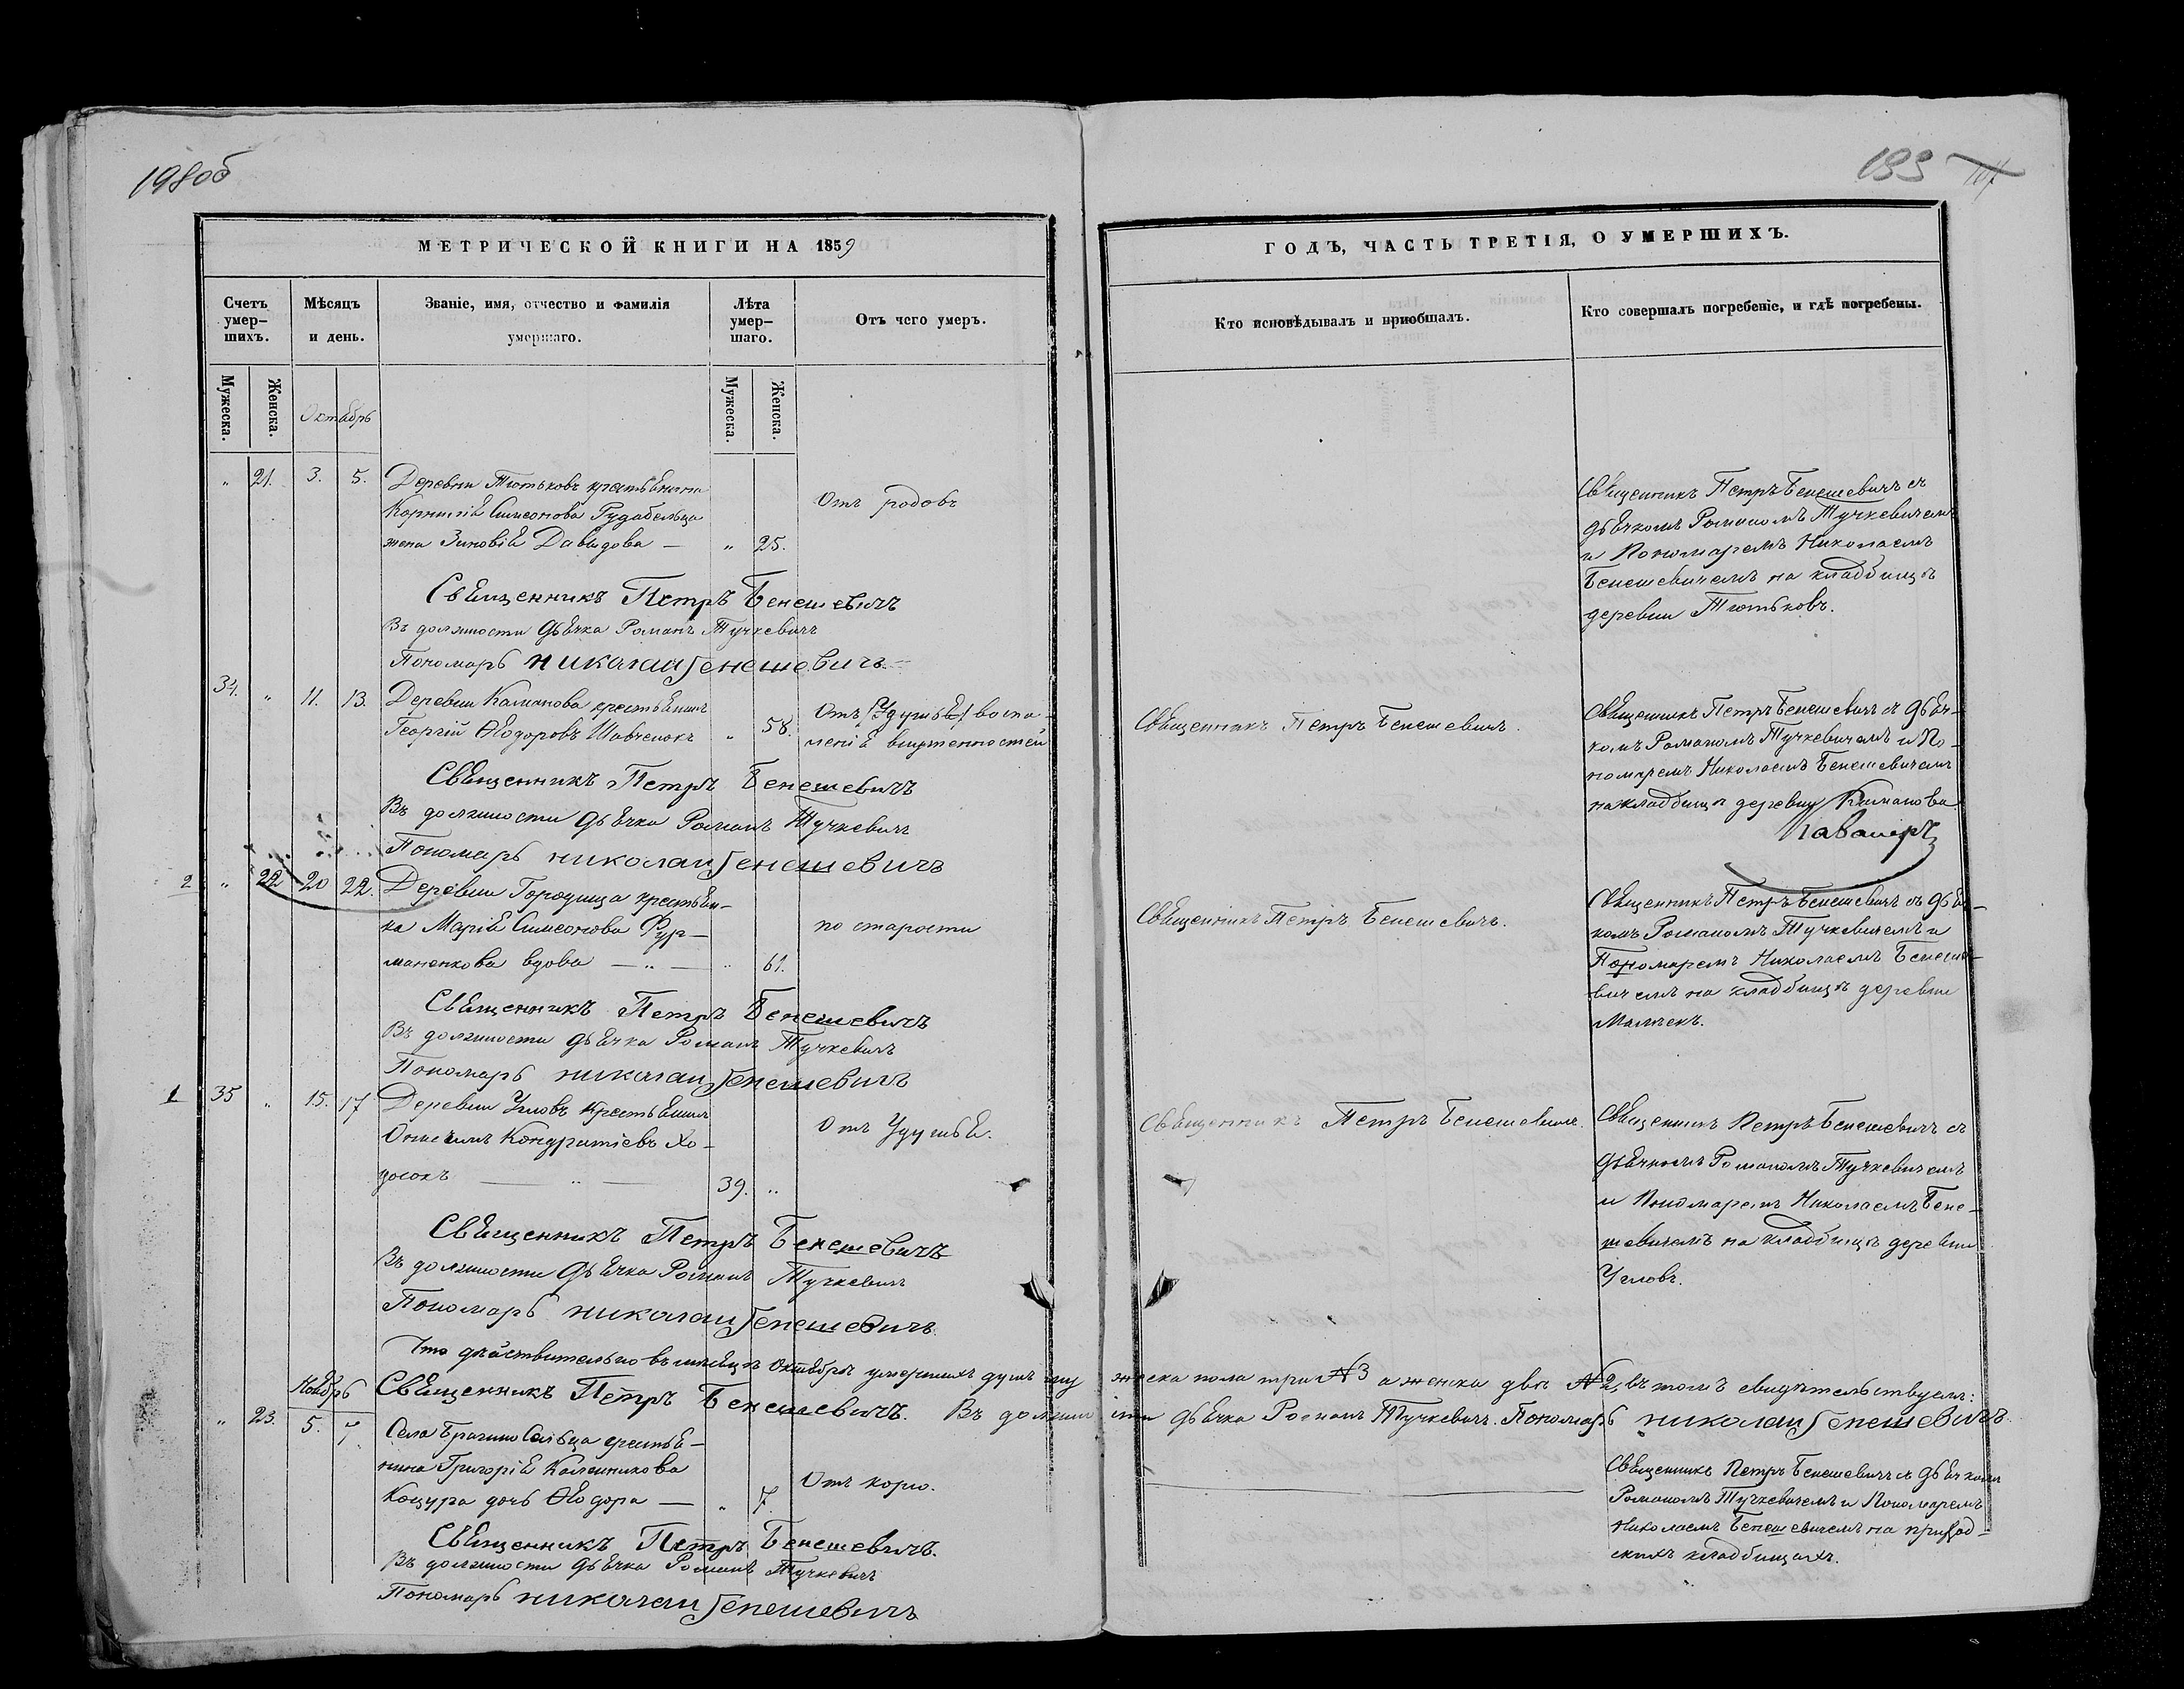 198об
199
МЕТРИЧЕСКОЙ КНИГИ НА 1859
ГОДЪ, ЧАСТЬ ТРЕТІЯ, О УМЕРШИХЪ.
Счетъ умер-шихъ.
Мѣсяцъ и день.
Званіе, имя, отчество и фамилія умершаго.
Лѣта умер-шаго.
Отъ чего умеръ.
Кто исповѣдывалъ и пріобщалъ.
Кто совершалъ погребеніе, и гдѣ погребены.
Мужеска.
Женска.
Октябрь
Мужеска.
Женска.
" 21. 3. 5. Деревни Тютьковъ крестьянина
Корнилія Симеонова Гудабельца
жена Зиновія Давыдова — " 25.
Отъ родовъ
Священникъ Петръ Бенешевичъ съ
дьячкомъ Романомъ Тучкевичемъ
и Пономаремъ Николаемъ
Бенешевичемъ на кладбищѣ
деревни Тютьковъ.
Священникъ Петръ Бенешевичъ
Въ должности дьячка Романъ Тучкевичъ
Пономарь Николай Бенешевичъ
34. " 11. 13. Деревни Каманова крестьянинъ
Георгій Ѳеодоровъ Шавченокъ " 58.
Отъ Удушья воспа-
ленія внутренностей
Священникъ Петръ Бенешевичъ.
Священникъ Петръ Бенешевичъ съ дьяч-
комъ Романомъ Тучкевичемъ и По-
номаремъ Николаемъ Бенешевичемъ
на кладбищѣ деревни Каманова
Священникъ Петръ Бенешевичъ
Въ должности дьячка Романъ Тучкевичъ
Пономарь Николай Бенешевичъ
2 " 22 20 22. Деревни Городища крестьян-
ка Марія Симеонова Фур-
маненкова вдова — " — " 61.
по старости
Священникъ Петръ Бенешевичъ.
Священникъ Петръ Бенешевичъ съ дьяч-
комъ Романомъ Тучкевичемъ и
Пономаремъ Николаемъ Бенеше-
вичемъ на кладбищѣ деревни
Священникъ Петръ Бенешевичъ
Въ должности дьячка Романъ Тучкевичъ
Пономарь Николай Бенешевичъ
1 35 " 15. 17 Деревни крестьянинъ
Кондратіевъ Хо-
— " — 39. "
Отъ Удушья.
Священникъ Петръ Бенешевичъ.
Священникъ Петръ Бенешевичъ съ
дьячкомъ Романомъ Тучкевичемъ
и Пономаремъ Николаемъ Бене-
шевичемъ на кладбищѣ деревни
Священникъ Петръ Бенешевичъ
Въ должности дьячка Романъ Тучкевичъ
Пономарь Николай Бенешевичъ.
Что дѣйствительно въ мѣсяцѣ Октябрѣ умершихъ душъ му жеска пола три №3 а женска двѣ №2, въ томъ свидѣтельствуемъ:
Священникъ Петръ Бенешевичъ. Въ должно сти дьячка Романъ Тучкевичъ. Пономарь Николай Бенешевичъ.
Ноябрь
" 23. 5. 7. Села Брагино Сельца крестья-
нина Григорія Каленникова
Коцура дочь Ѳеодора — " 7.
Отъ корю.
Священникъ Петръ Бенешевичъ съ дьячкомъ
Романомъ Тучкевичемъ и Пономаремъ
Николаемъ Бенешевичемъ на приход-
скихъ кладбищахъ.
Священникъ Петръ Бенешевичъ.
Въ должности дьячка Романъ Тучкевичъ
Пономарь Николай Бенешевичъ